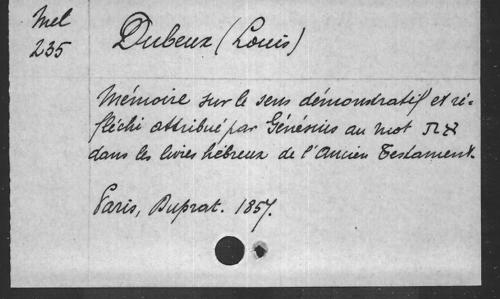 Mel
235
Dubeux (Louis)
Mémoire sur le sens démonstratif et ré-
fléchi attribué par Génésius au mot את
dans les livres hébreux de l'Ancien Testament.
Paris, Duprat. 1857.